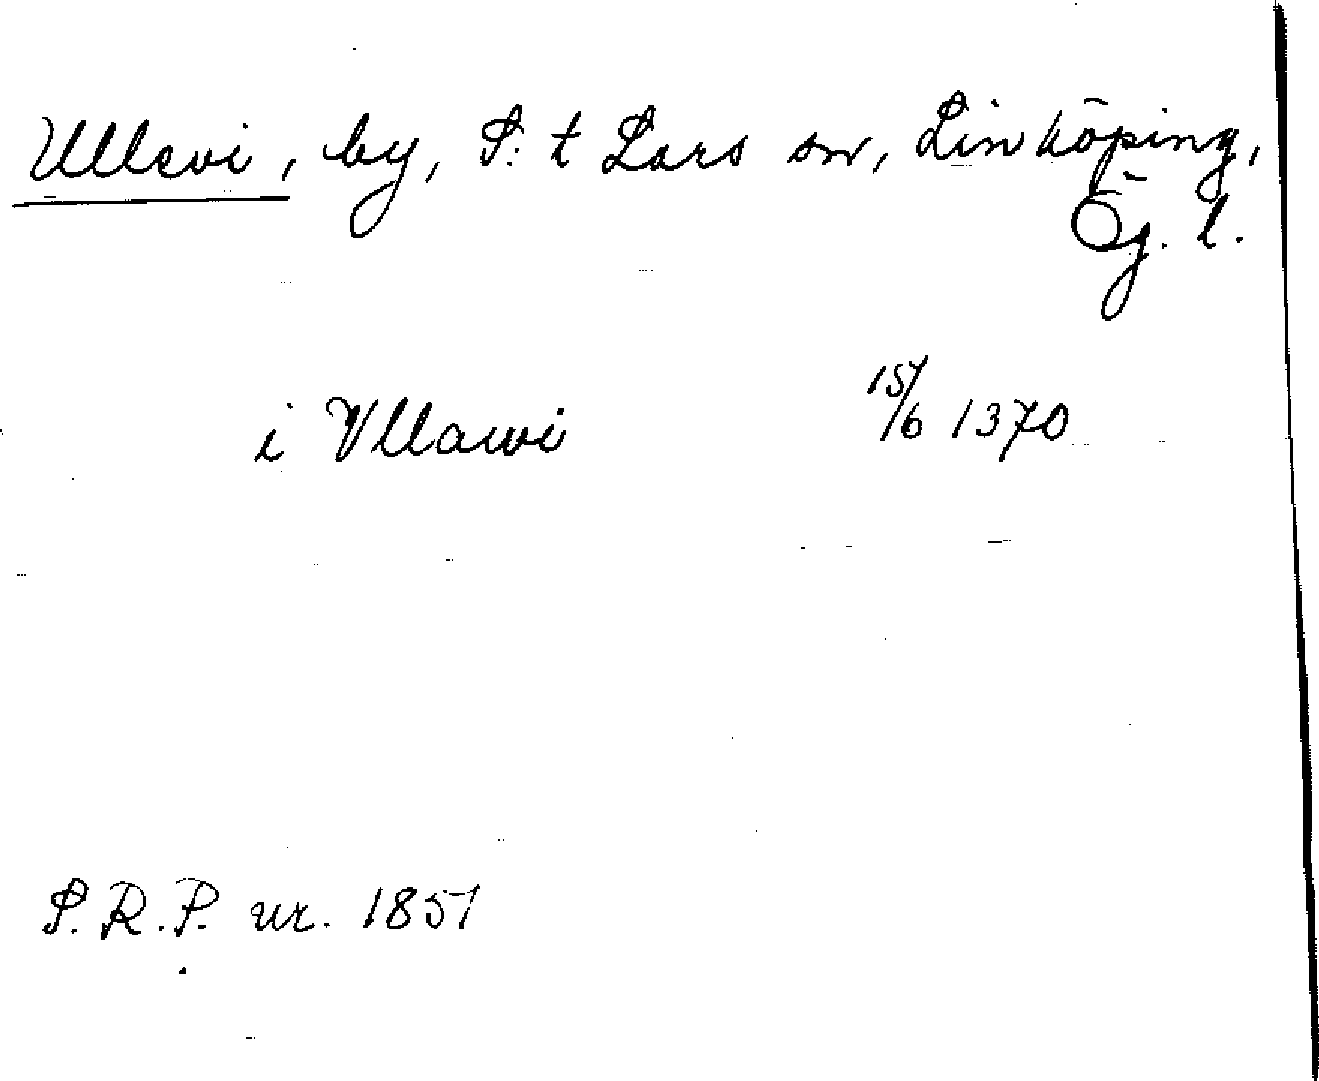 Ullevi, by, S:t Lars sn, Linköping,
Ög. l.
i Vllawi 15/6 1370
S.R.P. nr. 1851